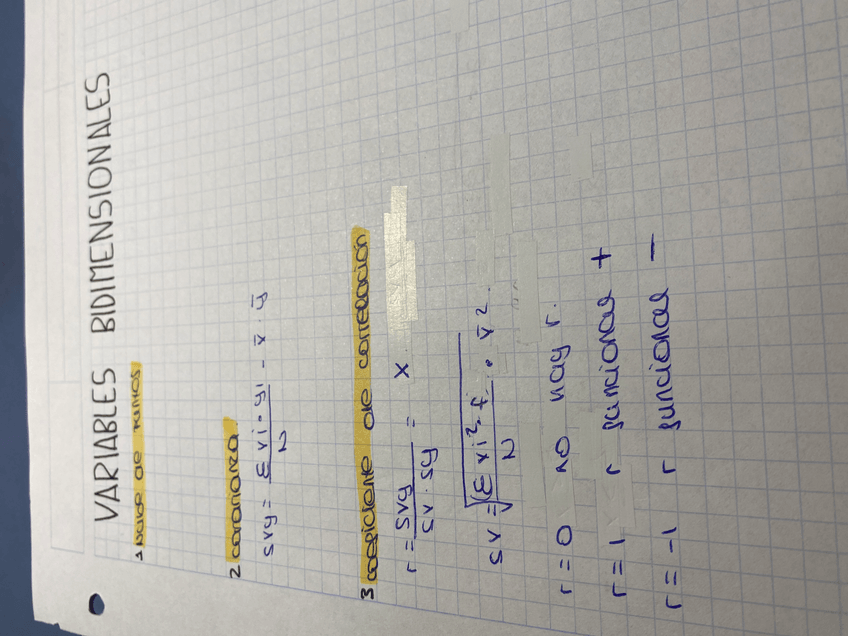 VARIABLES BIDIMENSIONALES
1 nube de puntos
2 covarianza
Sxy = Σ xi · yi / N - x̄ · ȳ
3 coeficiente de correlación
r = Sxy / Sx · Sy = x
Sx = √ Σ xi² · f / N · x̄².
r = 0 no hay r.
r = 1 r funcional +
r = -1 r funcional -